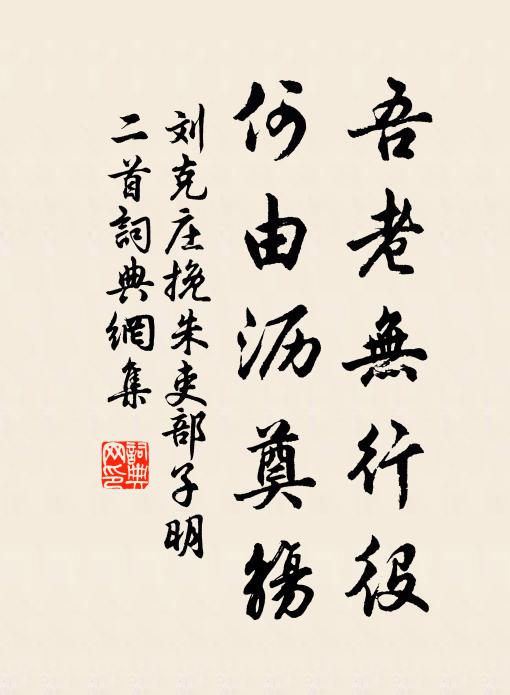 吾老無行役
何由沥奠觴
刘克庄挽朱吏部子明
二首詞典網集
詞典
网印